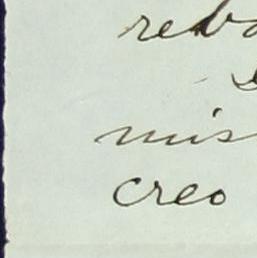 reba
mis
creo